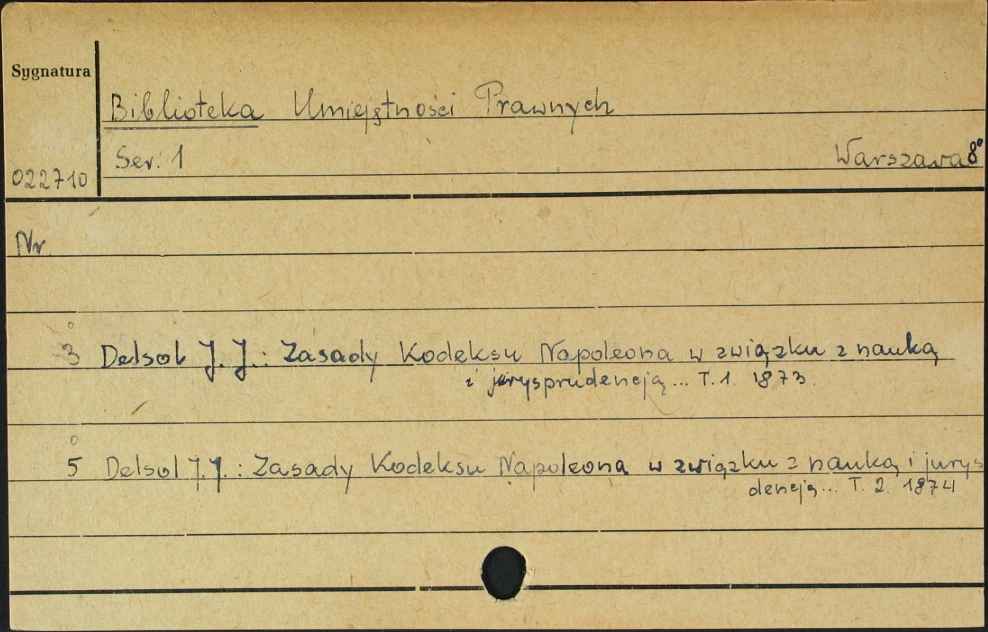 Sygnatura
Biblioteka Umiejętności Prawnych
Ser. 1 Warszawa 8°
022710
Nr.
3 Delsol J. J.: Zasady Kodeksu Napoleona w związku z nauką
i jurysprudencją... T. 1. 1873.
5 Delsol J. J.: Zasady Kodeksu Napoleona w związku z nauką i jurys
dencją... T. 2. 1874